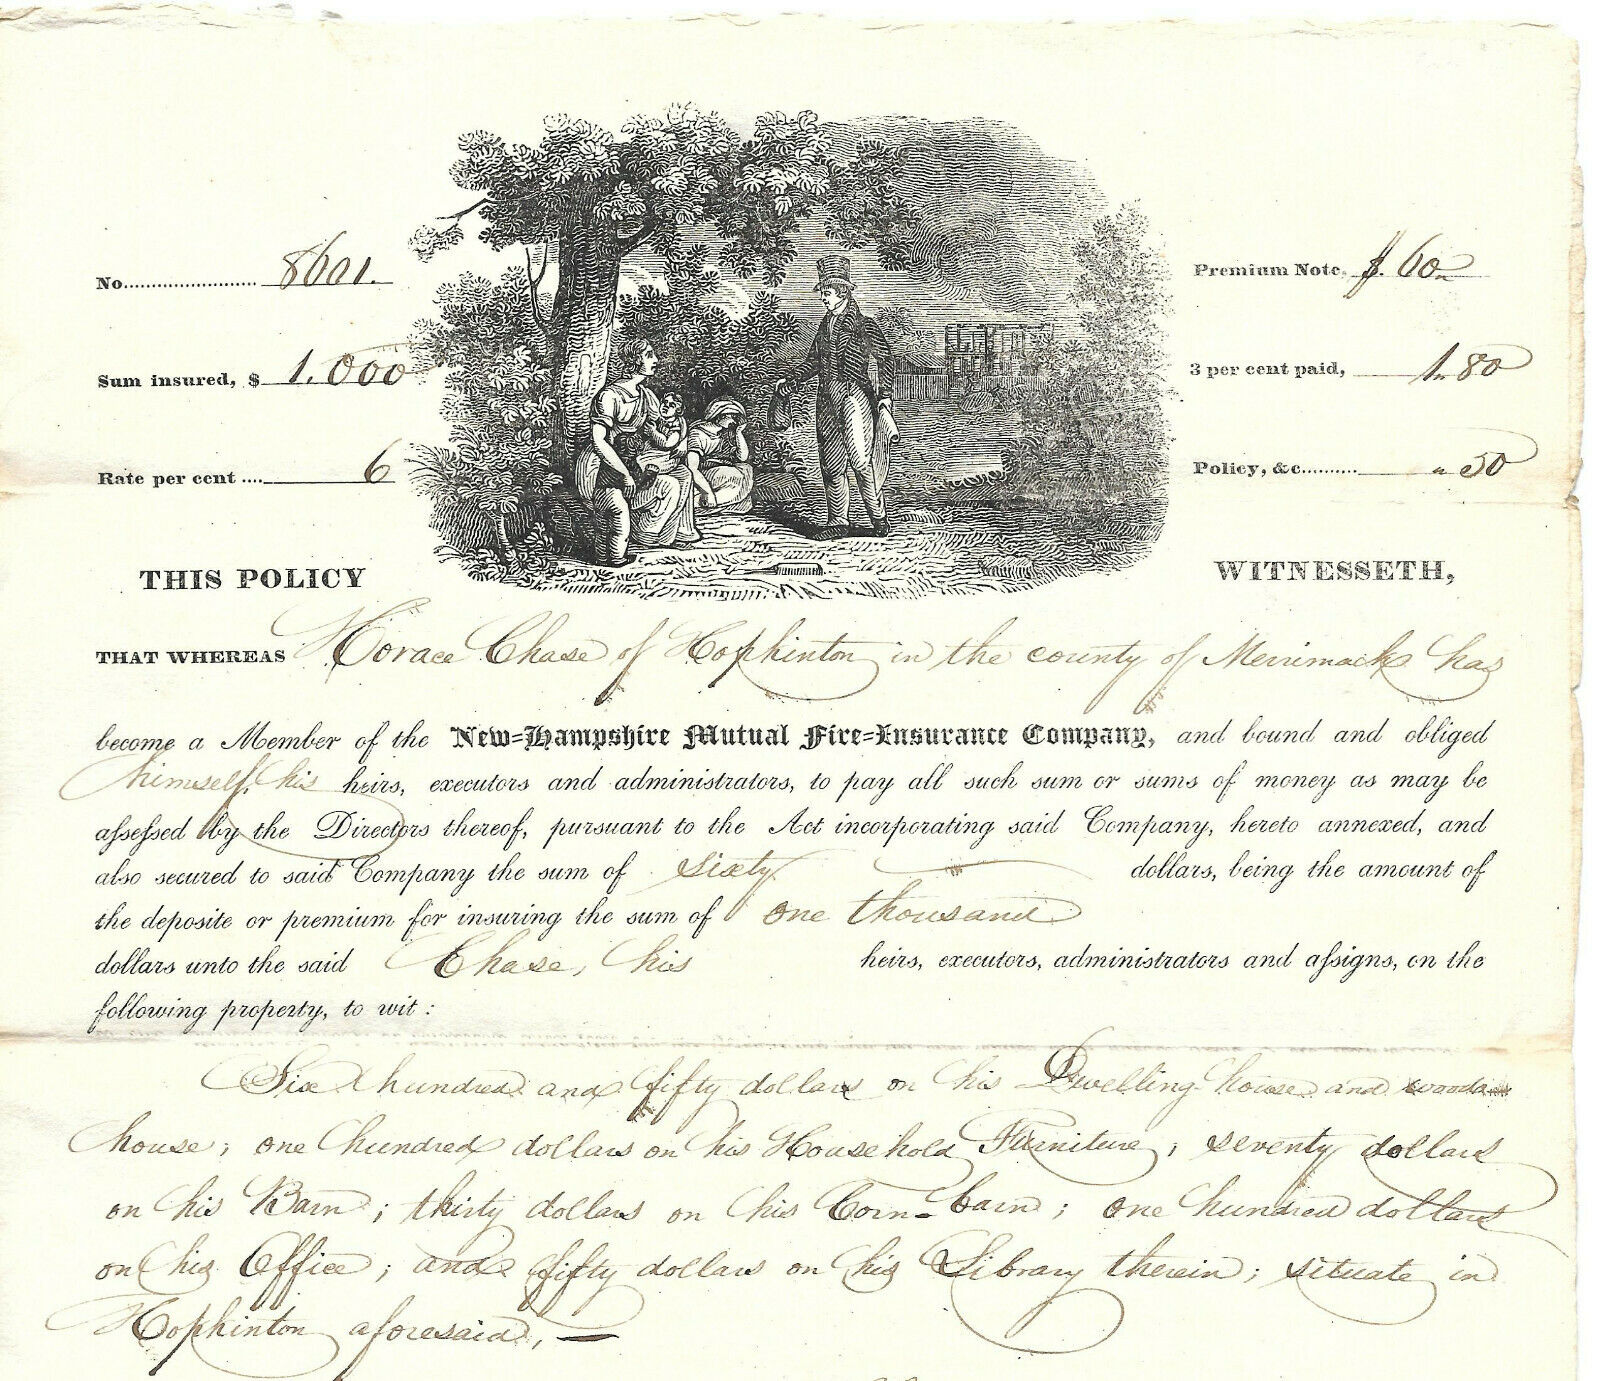 No. 8601.
Premium Note, $. 60
Sum insured, $ 1.000
3 per cent paid, 1.80
Rate per cent .... 6
Policy, &c. " 50
THIS POLICY WITNESSETH,
THAT WHEREAS Horace Chase of Hopkinton in the county of Merrimack has
become a Member of the New-Hampshire Mutual Fire-Insurance Company, and bound and obliged
himself, his heirs, executors and administrators, to pay all such sum or sums of money as may be
aſseſsed by the Directors thereof, pursuant to the Act incorporating said Company, hereto annexed, and
also secured to said Company the sum of sixty dollars, being the amount of
the deposite or premium for insuring the sum of one thousand
dollars unto the said Chase, his heirs, executors, administrators and aſsigns, on the
following property, to wit:
Six hundred and fifty dollars on his Dwelling-house and wood
house; one hundred dollars on his Household Furniture; seventy dollars
on his Barn; thirty dollars on his Corn-barn; one hundred dollars
on his Office; and fifty dollars on his Library therein; situate in
Hopkinton aforesaid, —